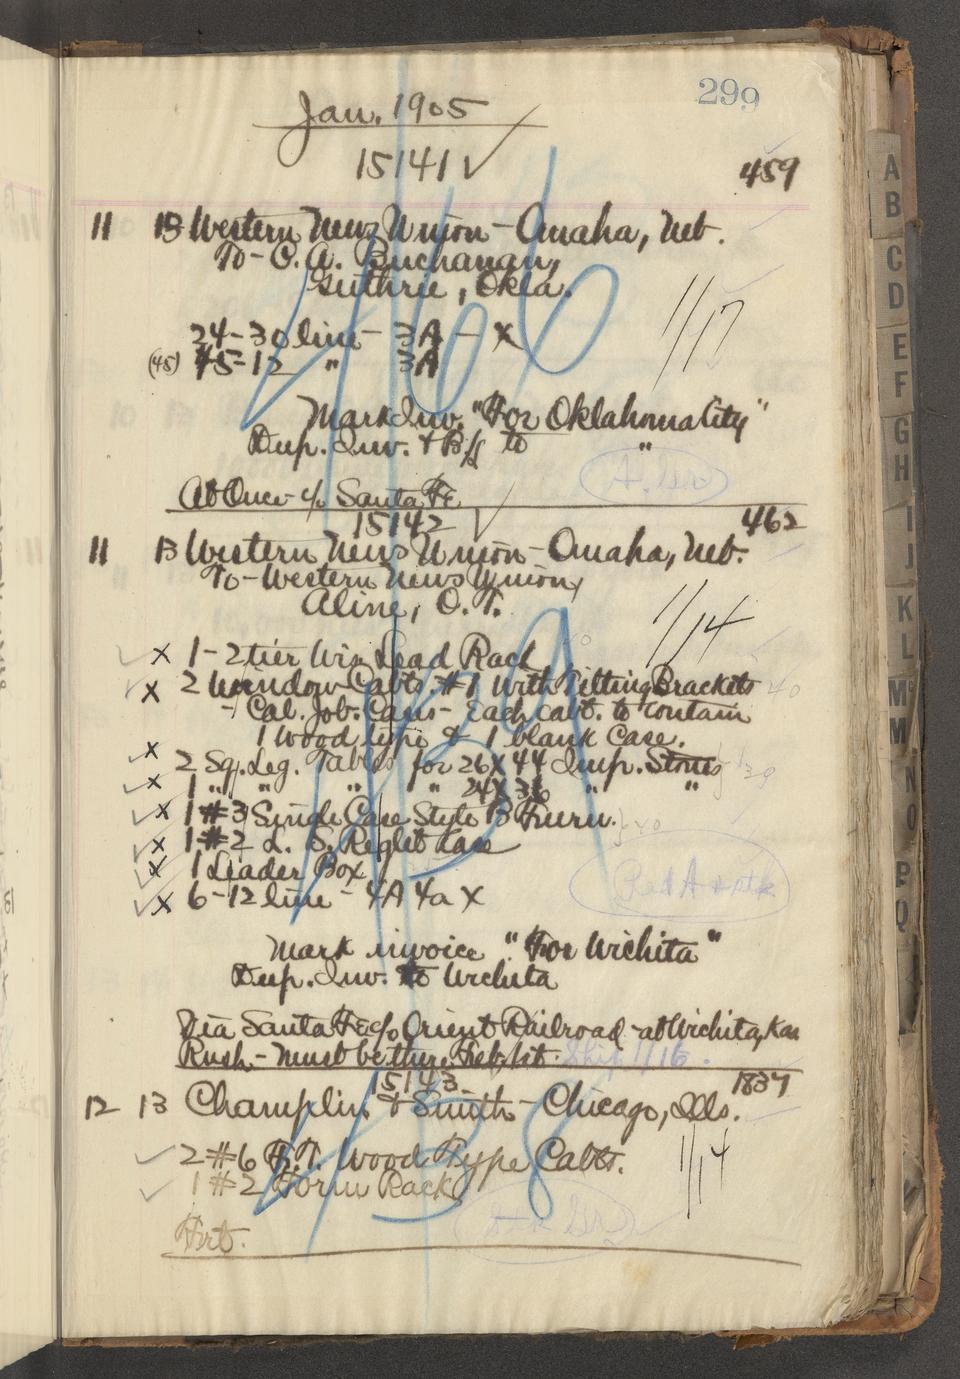 299
Jan. 1905
15141 ✓
459
11 13 Western News Union - Omaha, Neb.
To - C. A. Buchanan,
Guthrie, Okla.
1/17
24-30 line - 3A - X
(45) 45-12 " 3A
Mark Inv. "For Oklahoma City"
Dup. Inv. & B/L to "
At Once c/o Santa Fe
466
15142 ✓
462
11 13 Western News Union - Omaha, Neb.
To - Western News Union,
Aline, O. T.
1/14
✓ X 1 - 2 tier Lead Rack
X 2 Window Cabts. #1 with Tilting Brackets
- Cal. Job. Cases - Each cabt. to contain
1 Wood type & 1 blank Case.
X 2 Sq. Leg. Tables for 26X44 Imp. Stones
X 1 " " " " 24X36 " "
✓ X 1 #3 Single Case Style B Frum.
✓ X 1 #2 L. S. Reglet Case
✓ X 1 Leader Box
✓ X 6-12 line - 4A 4a X
Mark invoice "For Wichita"
Dup. Inv. to Wichita
Via Santa Fe c/o Orient Railroad - at Wichita, Kan
Rush - Must be there Feb. 1st. Ship 1/16.
15143
1837
12 13 Champlin & Smith - Chicago, Ills.
1/14
✓ 2 #6 Wood Type Cabts.
✓ 1 #2 Form Rack
A
B
C
D
E
F
G
H
I
J
K
L
M
M
N
O
P
Q